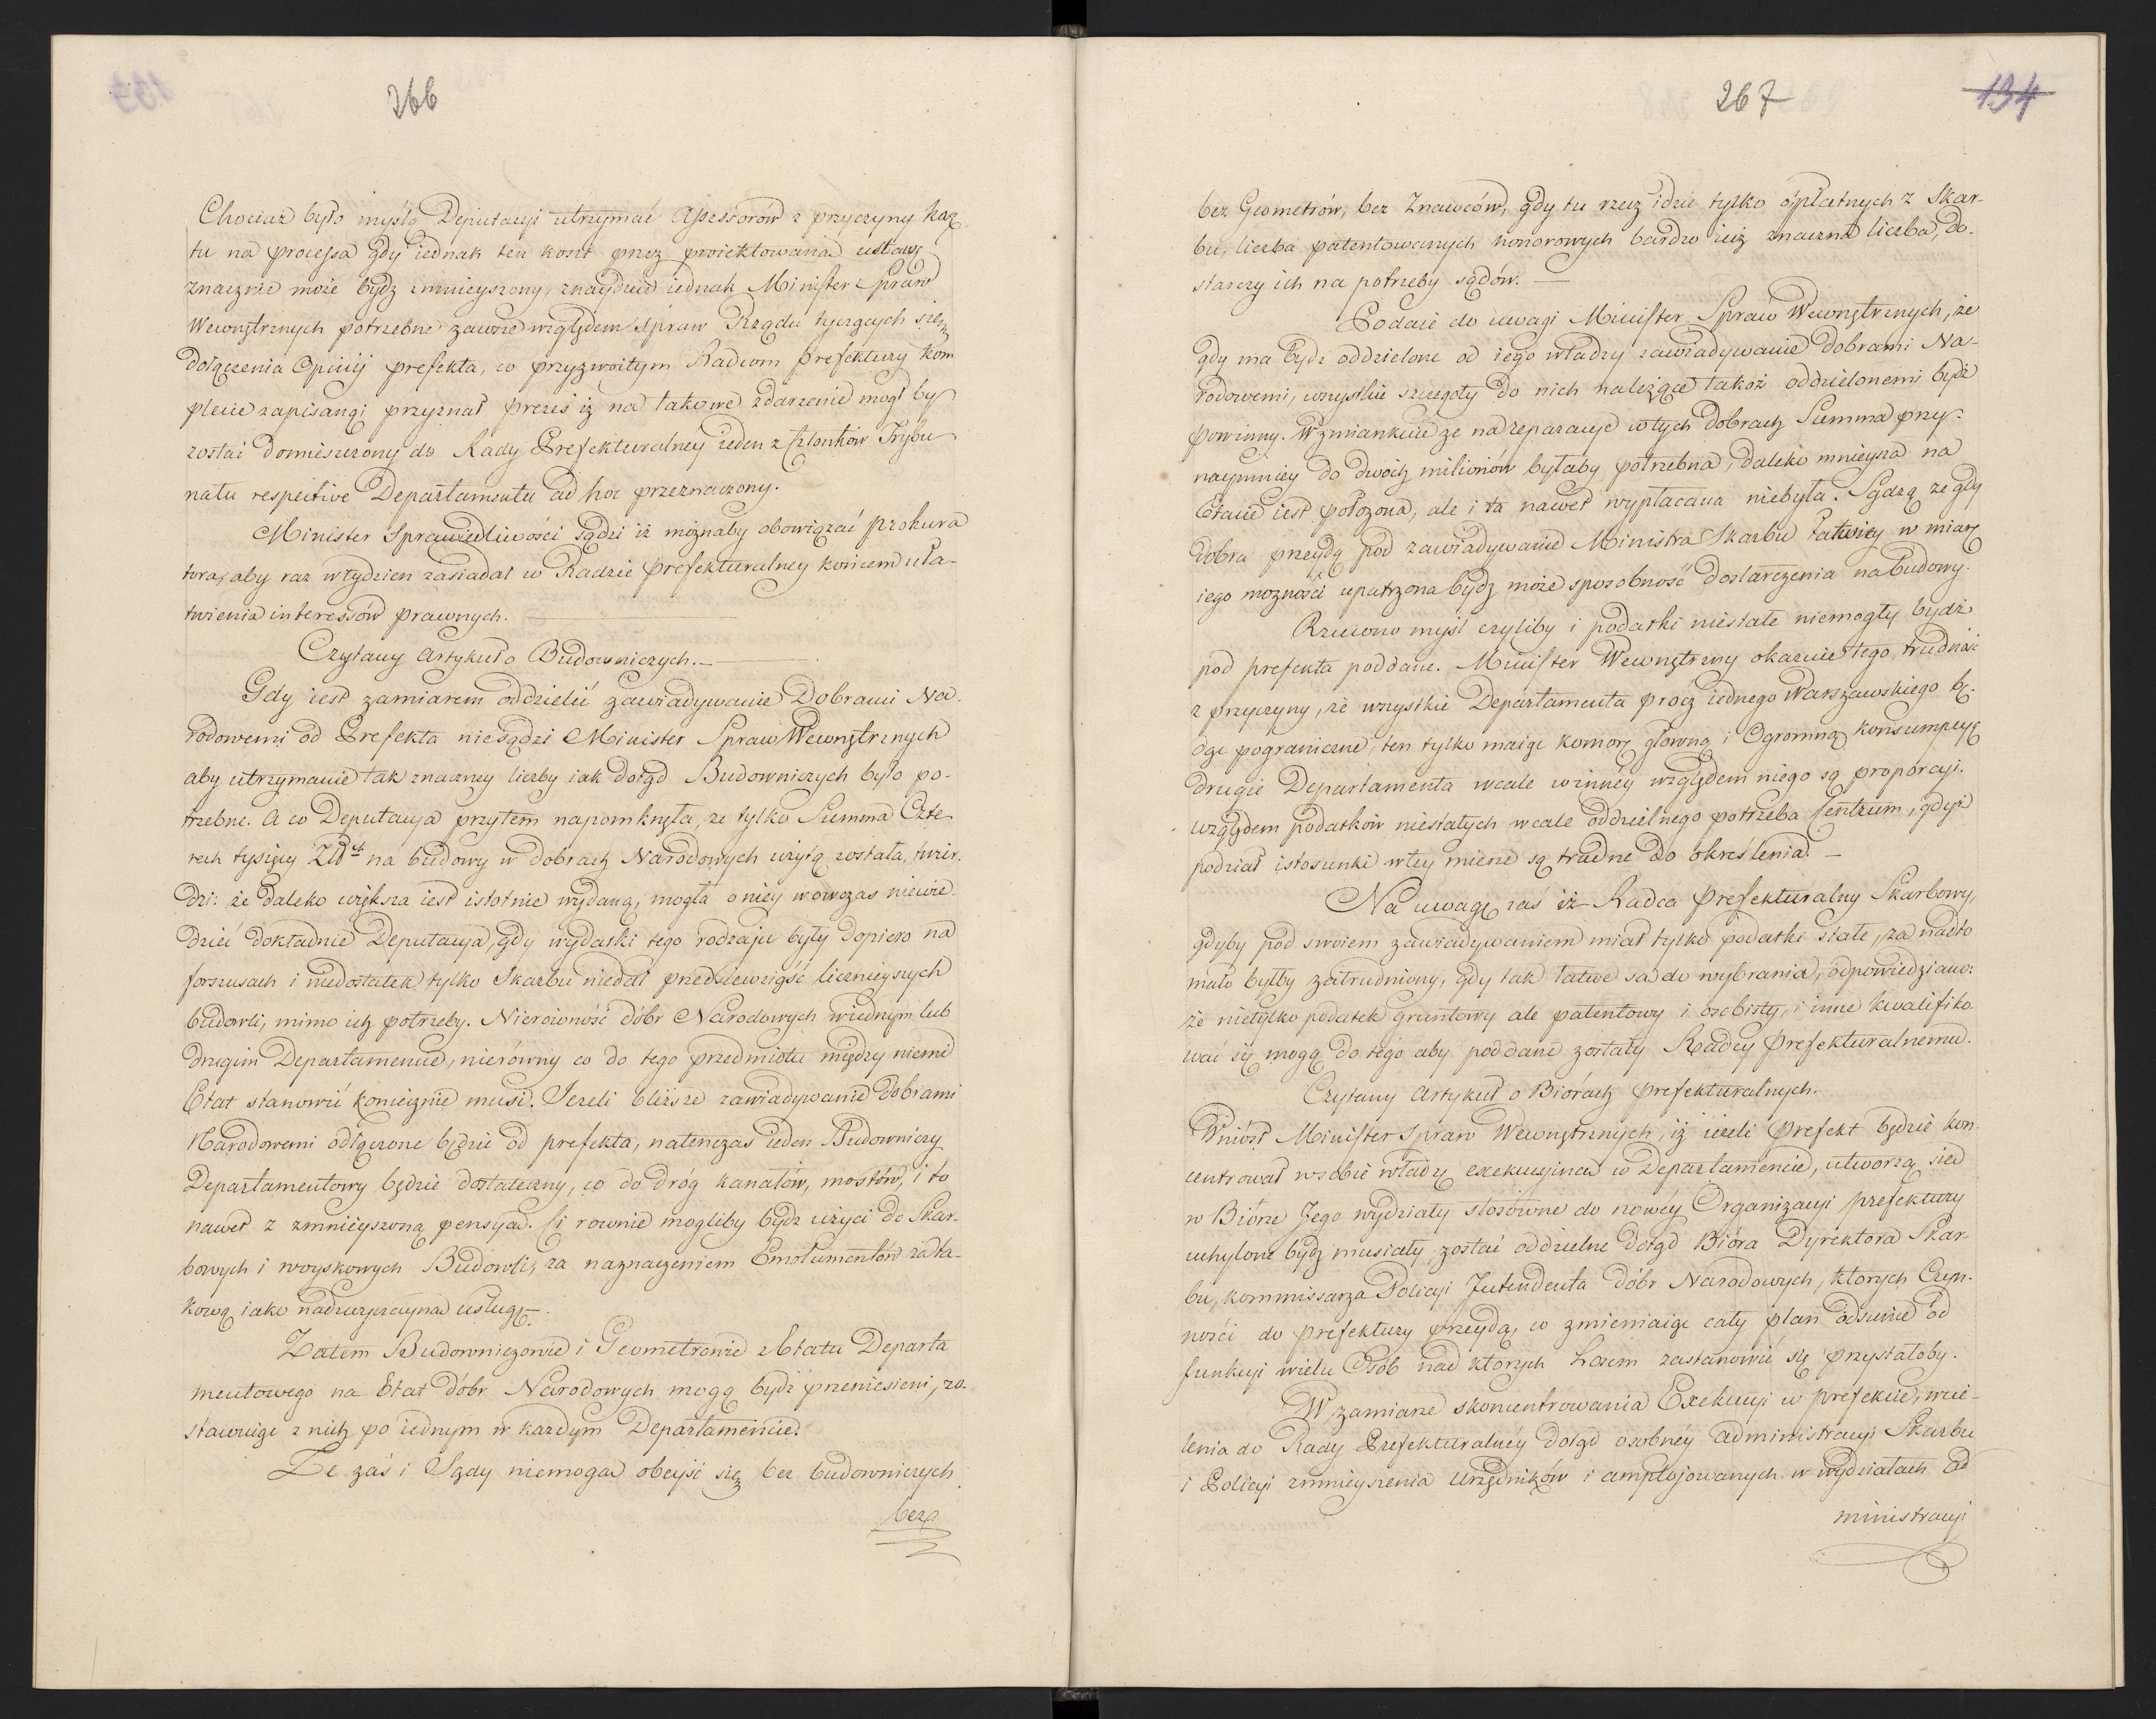 266
Chociaż było myślą Deputacyi utrzymać Assessorów z przyczyny kosz
tu na processa gdy iednak ten koszt przez proiektowaną ustawę
znacznie może bydź zmnieyszony, znayduie iednak Minister Spraw
Wewnętrznych potrzebne zawsze względem spraw Rządu tyczących się
dołączenia Opinij prefekta, co przyzwoitym Radcom prefektury kom
plecie zapisanej przyznał prezes iż na takowe zdarzenie mogł by
zostać domieszczony do Rady Prefekturalnéy ieden z Członków Trybu
natu respective Departamentu ad hoc przeznaczony.
Minister Sprawiedliwości sądzi iż możnaby obowiązać prokura
tora, aby raz w tydzien zasiadał w Radzie prefekturalney końcem uła-
twienia interessów prawnych.
Czytany Artykuł o Budowniczych.
Gdy iest zamiarem oddzielić zawiadywanie Dobrami Na-
rodowemi od Prefekta niesądzi Minister Spraw Wewnętrznych
aby utrzymanie tak znaczney liczby iak dotąd Budowniczych było po-
trzebne. A co Deputacya przytem napomknęła, ze tylko Summa Czte
rech tysięcy Złotᵗ na budowy w dobrach Narodowych użytą została, twier-
dzi: że daleko większa iest istotnie wydaną, mogła o niey wowczas niewie
dzieć dokładnie Deputacya, gdy wydatki tego rodzaju były dopiero na
forszusach i niedostatek tylko Skarbu niedał przedsiewziąść licznieyszych
budowli, mimo ich potrzeby. Nierowność dóbr Narodowych wiednym lub
drugim Departamencie, nierówny co do tego przedmiotu między niemi
Etat stanowić koniecznie musi. Jeżeli bliższe zawiadywanie dobrami
Narodowemi odłączone będzie od prefekta, natenczas ieden Budowniczy
Departamentowy będzie dostateczny, co do dróg kanałów, mostów, i to
nawet z zmnieyszoną pensyą. Ci rownie mogliby bydź użyci do Skar-
bowych i woyskowych Budowli, za naznaczeniem Emolumentów za ta-
kową, iako nadzwyczayną usługę.
Zatem Budowniczowie i Geometrowie z Etatu Departa
mentowego na Etat dóbr Narodowych mogą bydź przeniesieni, zo-
stawuiąc z nich po iednym w każdym Departamencie.
Ze zaś i Sądy niemogą obeyść się bez budowniczych
bez
267
134
bez Geometrów, bez Znawców, gdy tu rzecz idzie tylko o płatnych z Skar-
bu, liczba patentowanych honorowych bardzo iuż znaczna liczba, do-
starczy ich na potrzeby sądów.
Podaie do uwagi Minister Spraw Wewnętrznych, że
gdy ma bydź oddzielone od iego władzy zawiadywanie dobrami Na-
rodowemi, wszystkie szczegóły do nich należące takoż oddzielonemi bydź
powinny. Wzmiankuie ze na reparacye w tych dobrach Summa przy-
naymniey do dwóch milionów byłaby potrzebna, daleko mnieysza na
Etacie iest położona, ale i ta nawet wypłacana niebyła. Sądzą ze gdy
dobra przeydą pod zawiadywanie Ministra Skarbu łatwiey w miarę
iego mozności upatrzona bydź może sposobność dostarczenia na budowy.
Rzucono myśl czyliby i podatki niestałe niemogły bydź
pod prefekta poddane. Minister Wewnętrzny okazuie tego trudność
z przyczyny, że wszystkie Departamenta prócz iednego Warszawskiego bę-
dąc pograniczne, ten tylko maiąc komorę główną i Ogromną konsumpcyę
drugie Departamenta wcale w inney względem niego są proporcyi.
względem podatków niestałych wcale oddzielnego potrzeba Centrum, gdyż
podział i stosunki w tey mierze są trudne do określenia.
Na uwagę zaś iż Radca prefekturalny Skarbowy,
gdyby pod swoiem zawiadywaniem miał tylko podatki stałe, za nadto
mało byłby zatrudniony, gdy tak łatwe są do wybrania, odpowiedziano:
że nietylko podatek gruntowy ale patentowy i osobisty, i inne kwalifiko
wać się mogą do tego aby poddane zostały Radcy prefekturalnemu.
Czytany Artykuł o Biórach prefekturalnych.
Wniósł Minister Spraw Wewnętrznych, iż ieżeli Prefekt będzie kon-
centrował w sobie władzę exekucyiną w Departamencie, utworzą się
w Biórze Jego wydziały stosowne do nowéy Organizacyi prefektury
uchylone bydź musiały, zostać oddzielne dotąd Bióra Dyrektora Skar-
bu, kommissarza Policyi Intendenta dóbr Narodowych, ktorych Czyn-
ności do prefektury przeydą, co zmieniaiąc cały plan odsunie od
funkcyi wielu Osób nad ktorych Losem zastanowić się przystałoby.
W zamiarze skoncentrowania Exekucyi w prefekcie, wcie-
lenia do Rady Prefekturalnéy dotąd osobnéy administracyi Skarbu
i Policyi zmnieyszenia Urzędników i amplojowanych w wydziałach Ad
ministracyi